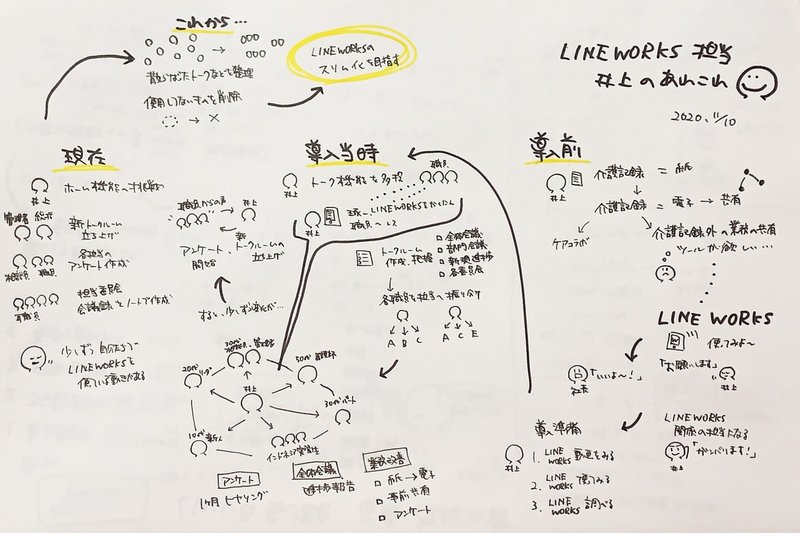 LINE WORKS 担当
井上のあれこれ
2020. 11/10
導入前
井上
介護記録 = 紙
介護記録 = 電子 → 共有
ケアコラボ
介護記録外の業務の共有
ツールが欲しい…
LINE WORKS
使ってみよ〜
「お願いします」
井上
「いいよ〜!」
社長
LINE WORKS
関係の担当となる
「ガンバります!」
井上
導入準備
井上
1. LINE WORKS 動画をみる
2. LINE WORKS 使ってみる
3. LINE WORKS 調べる
導入当時
井上
トーク機能を多投
職員
井上
職員へレス
トークルーム
作成、把握
全体会議
部門会議
各委員会
各職員を担当へ振り分け
A B C
A C E
20代リーダー
井上
30代パート
10代新人
インドネシア実習生
アンケート
1ヶ月ヒヤリング
全体会議
進捗報告
業務改善
紙→電子
事前共有
アンケート
すると、少しずつ変化が…
職員からの声
井上
アンケート、トークルームの
新
立ち上げ
現在
井上
ホーム機能への挑戦
管理者
新トークルーム
立ち上げ
相談員 職員
各担当の
アンケート作成
職員
担当委員会
会議録をノートで作成
少しずつ自分たちで
LINE WORKSを
使っている動きがある
これから…
散らばったトークなどを整理
使用しないものを削除
LINE WORKSの
スリム化を目指す